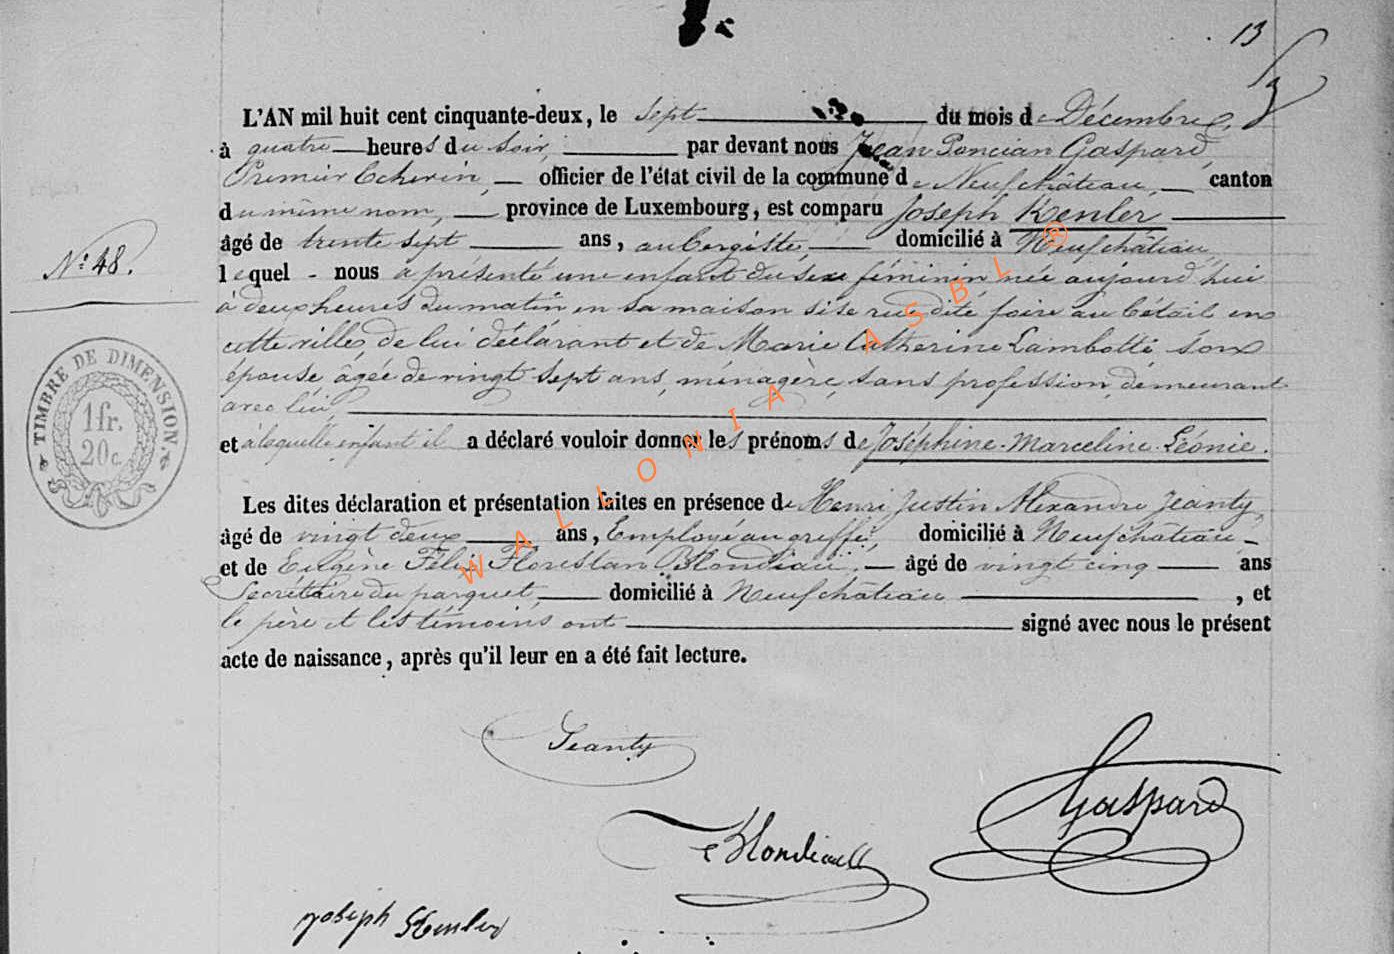 13
L'AN mil huit cent cinquante-deux, le sept du mois de Décembre,
à quatre heures du soir, par devant nous Jean Poncian Gaspard,
Premier Echevin, officier de l'état civil de la commune de Neufchâteau, canton
du même nom, province de Luxembourg, est comparu Joseph Kenler
âgé de trente sept ans, aubergiste, domicilié à Neufchâteau,
N° 48.
lequel - nous a présenté une enfant du sexe féminin née aujourd'hui
à deux heures du matin en sa maison sise rue dite foire au bétail en
cette ville, de lui déclarant et de Marie Catherine Lambotte son
épouse âgée de vingt sept ans, ménagère, sans profession, demeurant
avec lui,
et à laquelle enfant il a déclaré vouloir donner les prénoms de Joséphine-Marceline-Léonie.
TIMBRE DE DIMENSION.
1 fr.
20 c.
Les dites déclaration et présentation faites en présence de Henri Justin Alexandre Jeanty,
âgé de vingt deux ans, Employé au greffe, domicilié à Neufchâteau
et de Eugène Félix Florestan Blondiau, âgé de vingt cinq ans
Secrétaire du parquet, domicilié à Neufchâteau, et
le père et les témoins ont signé avec nous le présent
acte de naissance, après qu'il leur en a été fait lecture.
WALLONIA ASBL ®
Jeanty
Gaspard
Blondiau
Joseph Kenler